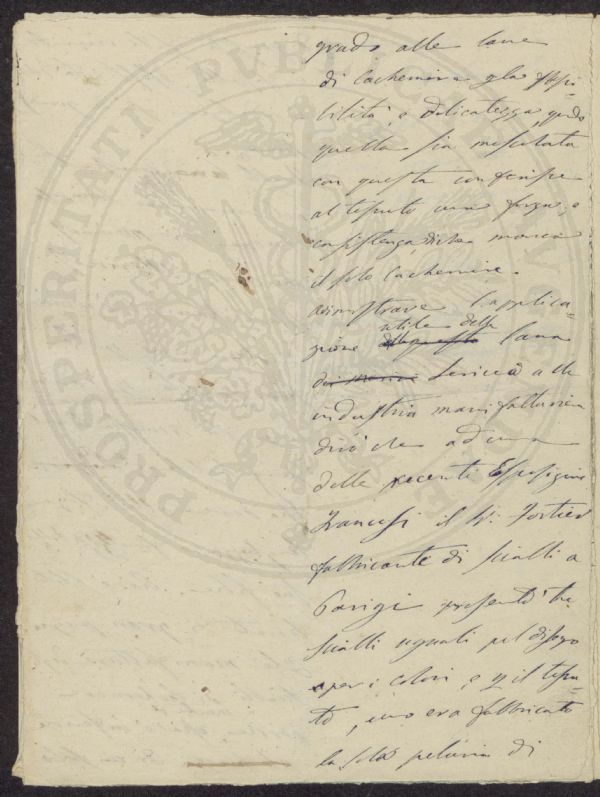 PROSPERITATI PVBLICAE
grado alle lane
di Cachemire p la flessi-
bilità, e delicatezza, qdo
quella sia mescolata
con questa conferisce
al tessuto una forza, e
consistenza, di che manca
il solo Cachemire.
a dimostrare l'applica-
zione utile della lana
dei merini Serica alla
industria manifatturiera
dirò che ad una
delle recenti Esposizioni
Francesi il Sr. Fortier
fabbricante di scialli a
Parigi presentò tre
scialli uguali pel disegno
per i colori, e p il tessu-
to, uno era fabbricato
la sola peluria di